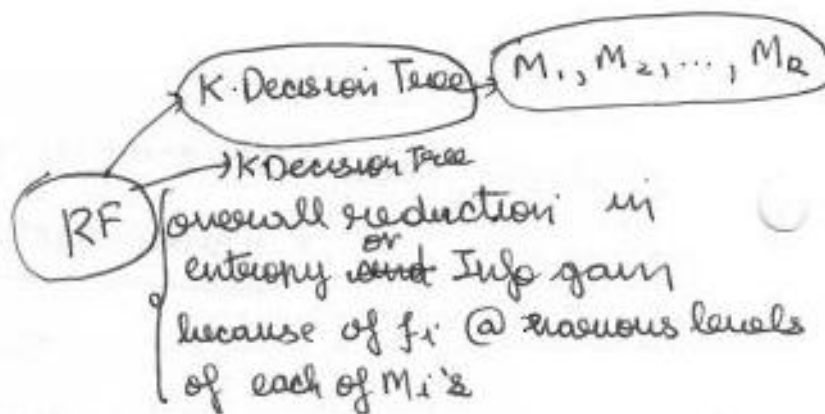 K. Decision Tree
M1, M2, ..., Mk
K Decision Tree
RF
overall reduction in
or
entropy and Info gain
because of fi @ various levels
of each of Mi's